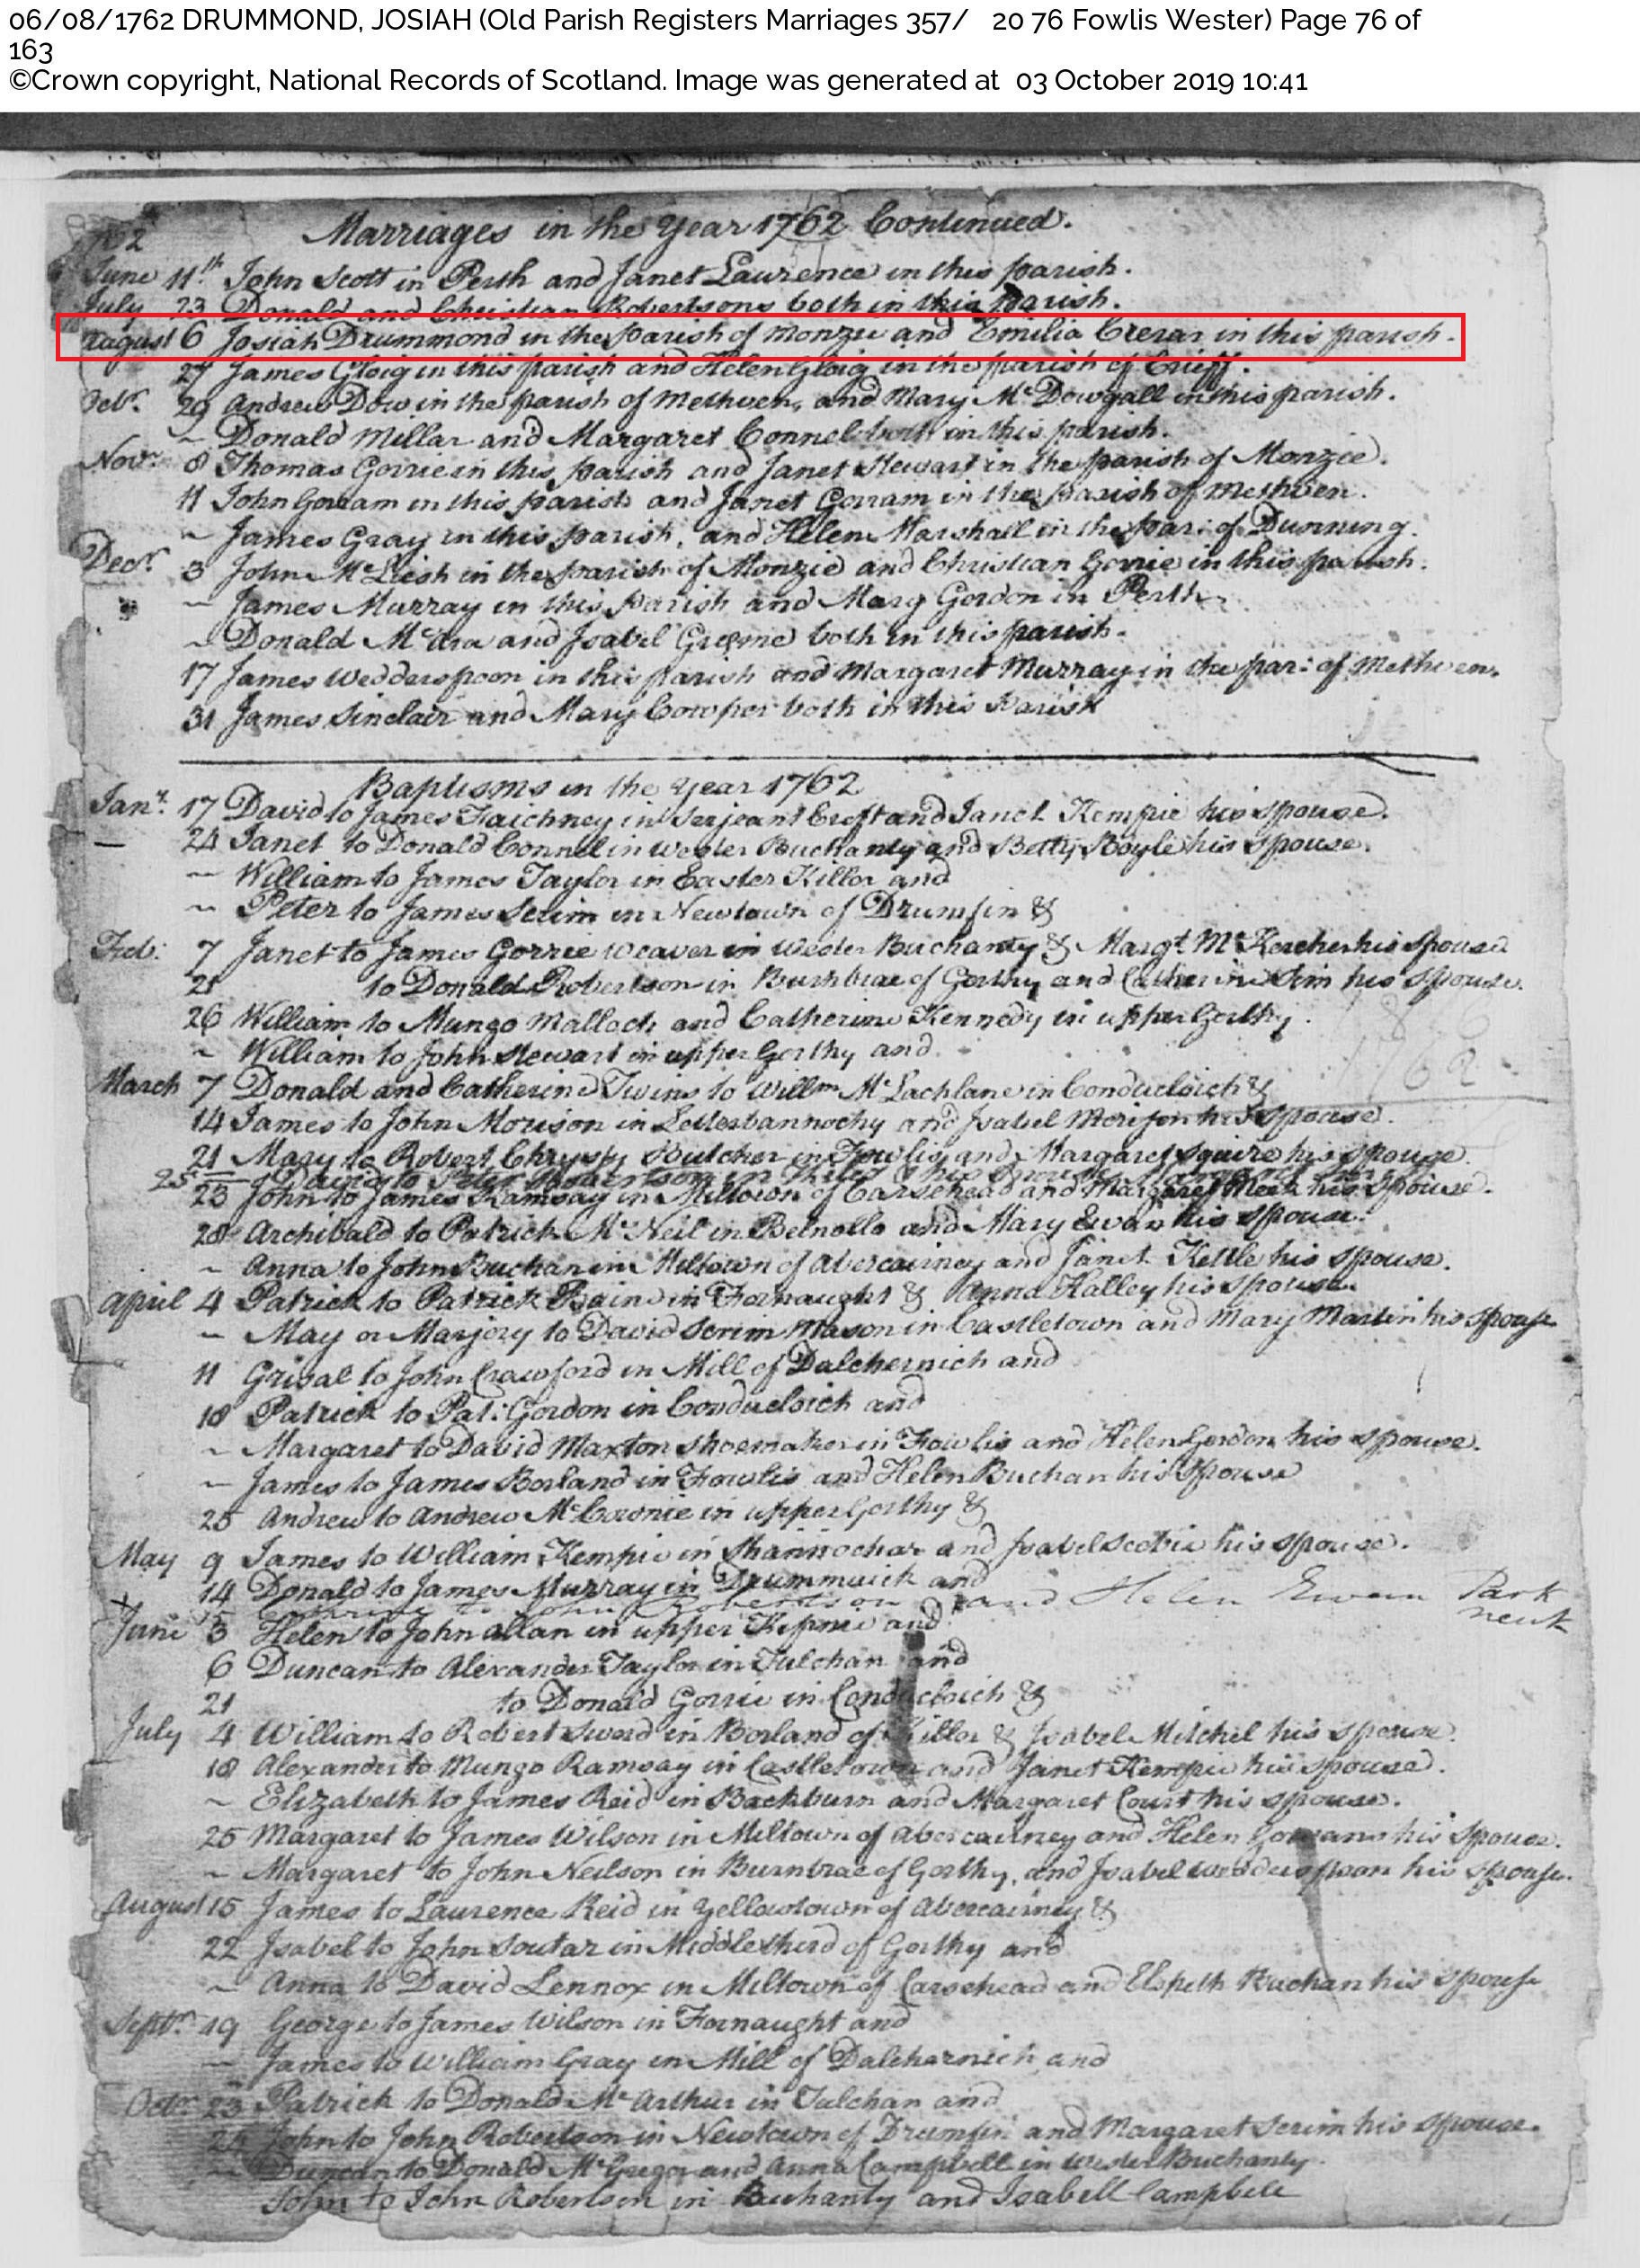 06/08/1762 DRUMMOND, JOSIAH (Old Parish Registers Marriages 357/ 20 76 Fowlis Wester) Page 76 of
163
©Crown copyright, National Records of Scotland. Image was generated at 03 October 2019 10:41
Marriages in the Year 1762 Continued.
June 11th John Scott in Perth and Janet Laurence in this parish.
July 23 Donald and Christian Robertsons both in this parish.
August 6 Josiah Drummond in the parish of Monzie and Emilia Crerar in this parish.
27 James Gloig in this parish and Helen Gloig in the parish of Crieff.
Octr. 29 Andrew Dow in the parish of Methven, and Mary McDowgall in this parish.
~ Donald Millar and Margaret Connel both in this parish.
Novr. 8 Thomas Gorrie in this parish and Janet Stewart in the parish of Monzie.
11 John Gorram in this parish and Janet Gorram in the parish of Methven.
~ James Gray in this parish, and Helen Marshall in the par: of Dunning.
Decr. 3 John McLish in the parish of Monzie and Christian Gorrie in this parish.
~ James Murray in this parish and Mary Gordon in Perth
~ Donald McAra and Isabel Græme both in this parish.
17 James Wedderspoon in this parish and Margaret Murray in the par: of Methven.
31 James Sinclair and Mary Cowper both in this Parish
Baptisms in the Year 1762
Janr. 17 David to James Faichney in Serjeant Croft and Janet Kempie his spouse.
— 24 Janet to Donald Connel in Wester Buchanty and Betty Boyle his spouse.
~ William to James Taylor in Easter Killor and
~ Peter to James Scrim in Newtown of Drumfin &
Feb: 7 Janet to James Gorrie weaver in Wester Buchanty & Margt. McKercher his Spouse
21 to Donald Robertson in Burnbrae of Gorthy and Catherine Sim his Spouse.
26 William to Mungo Malloch and Catherine Kennedy in upper Gorthy.
~ William to John Stewart in upper Gorthy and
March 7 Donald and Catherine Twins to Willm McLachlane in Conducloich &
14 James to John Morison in Letterbannochy and Isabel Morison his Spouse.
21 Mary to Robert Chrysty Butcher in Fowlis, and Margaret Squire his spouse.
25 David to Peter Robertson in
23 John to James Ramsay in Miltown of Carsehead and Margaret Meek his Spouse.
28 Archibald to Patrick McNeil in Belnollo and Mary Ewan his Spouse.
~ Anna to John Buchan in Miltown of Abercairney and Janet Kettle his spouse.
April 4 Patrick to Patrick Bain in Fornaught & Anna Halley his Spouse.
~ May or Marjory to David Scrim Mason in Castletown and Mary Martin his Spouse
11 Grisal to John Crawford in Mill of Dalchernich and
18 Patrick to Pat: Gordon in Conducloich and
~ Margaret to David Maxton shoemaker in Fowlis and Helen Gordon his spouse.
~ James to James Borland in Fowlis and Helen Buchan his Spouse
25 Andrew to Andrew McCronie in upper Gorthy &
May 9 James to William Kempie in Shannochar and Isabel Scobie his spouse.
14 Donald to James Murray in Drummuick and
to John Robertson and Helen Ewan Park
neuk
June 3 Helen to John Allan in upper Kipnie and
6 Duncan to Alexander Taylor in Tulchan and
21 to Donald Gorrie in Conducloich &
July 4 William to Robert Sword in Borland of Killor & Isabel Mitchel his spouse.
18 Alexander to Mungo Ramsay in Castletown and Janet Kempie his spouse.
~ Elizabeth to James Reid in Backburn and Margaret Court his spouse.
25 Margaret to James Wilson in Miltown of Abercairney and Helen his Spouse.
~ Margaret to John Neilson in Burnbrae of Gorthy, and Isabel Wedderspoon his Spouse.
August 15 James to Laurence Reid in Yellowtown of Abercairney &
22 Isabel to John Soutar in Middlethird of Gorthy and
~ Anna to David Lennox in Miltown of Carsehead and Elspeth Buchan his spouse
Septr. 19 George to James Wilson in Fornaught and
~ James to William Gray in Mill of Dalcharnich and
Octr. 23 Patrick to Donald McArthur in Tulchan and
24 John to John Robertson in Newtown of Drumfin and Margaret Scrim his Spouse.
~ Duncan to Donald McGregor and Anna Campbell in Wester Buchanty.
John to John Robertson in Buchanty and Isabell Campbell